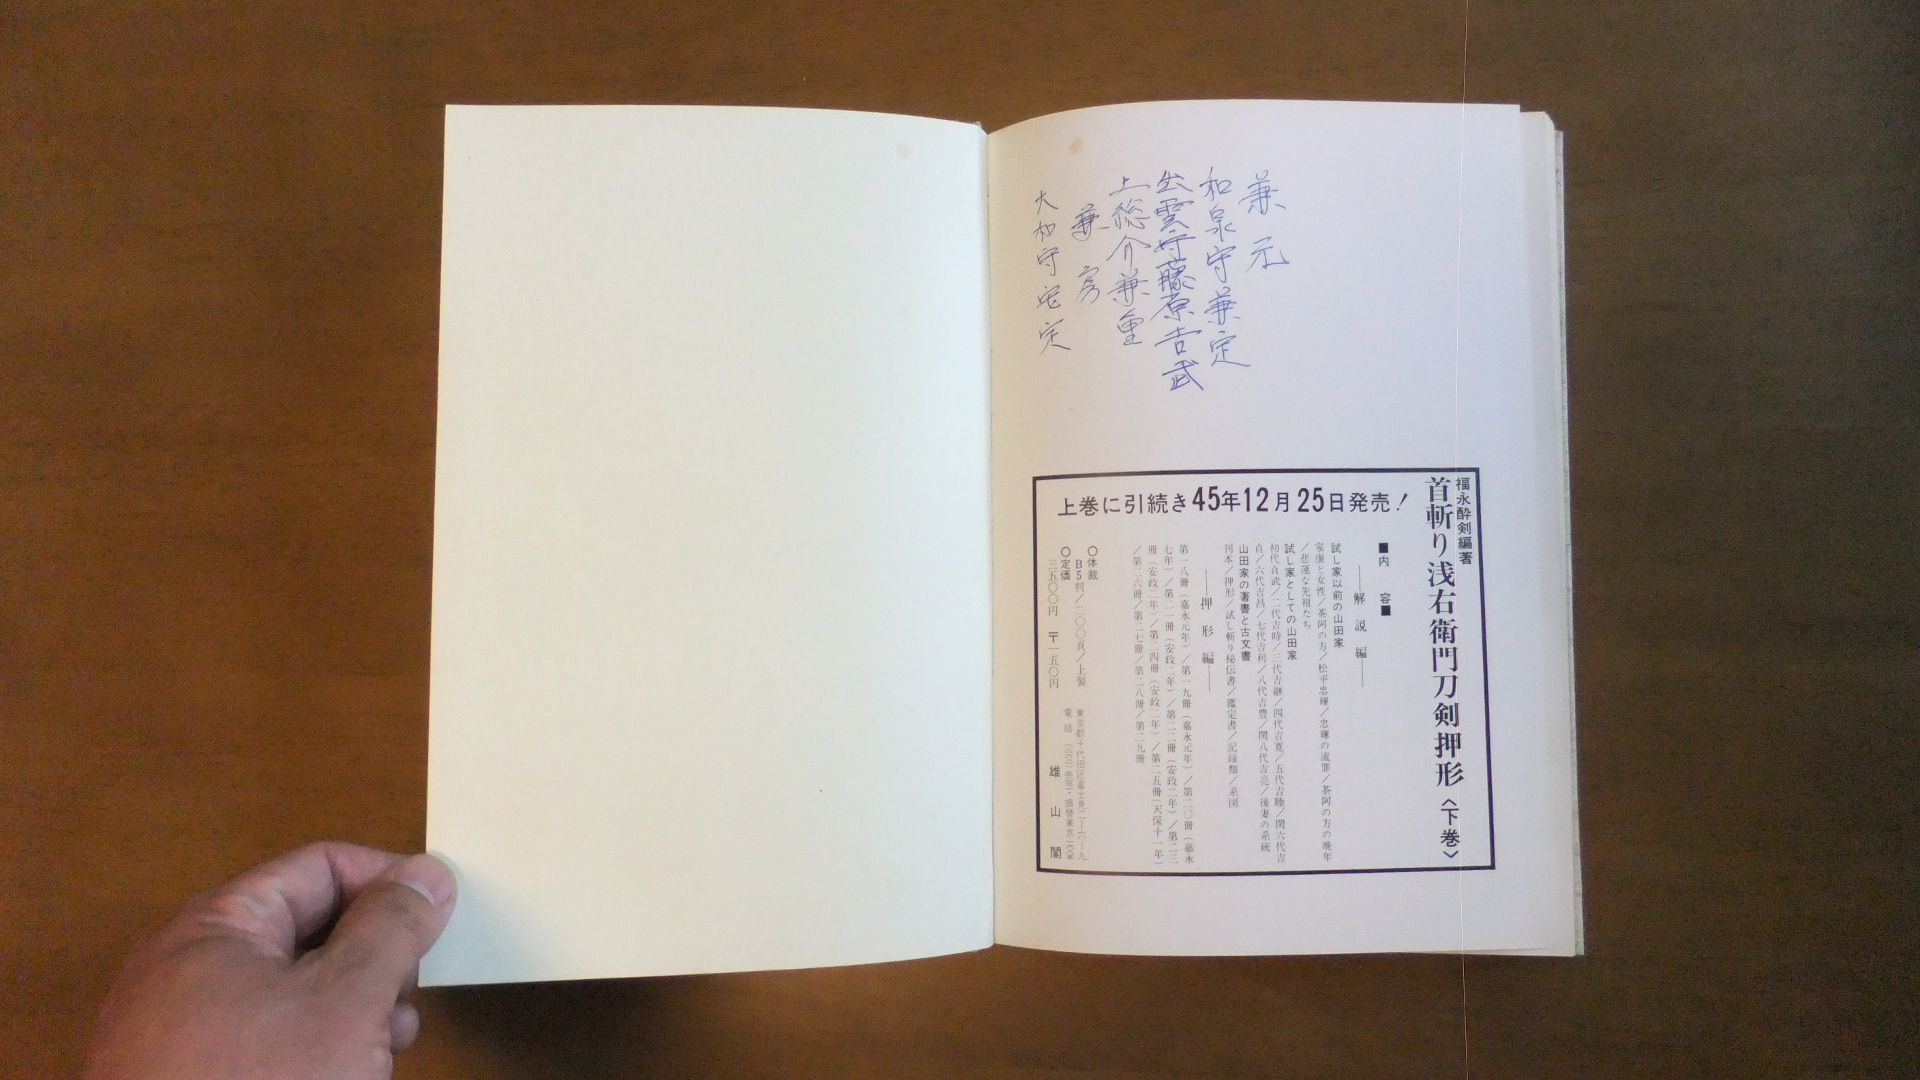 兼元
和泉守兼定
出雲守藤原吉武
上総介兼重
兼房
大和守安定
福永酔剣編著
首斬り浅右衛門刀剣押形〈下巻〉
上巻に引続き45年12月25日発売!
■内容■
――解説編――
試し家以前の山田家
家康と女性/茶阿の方/松平忠輝/忠輝の流罪/茶阿の方の晩年
/悲運な先祖たち
試し家としての山田家
初代貞武/二代吉時/三代吉継/四代吉寛/五代吉睦/閑六代吉
貞/六代吉昌/七代吉利/八代吉豊/閑八代吉亮/後妻の系統
山田家の著書と古文書
刊本/押形/試し斬り秘伝書/鑑定書/記録類/系図
――押形編――
第一八冊(嘉永元年)/第一九冊(嘉永元年)/第二〇冊(嘉永
七年)/第二一冊(安政二年)/第二二冊(安政二年)/第二三
冊(安政二年)/第二四冊(安政二年)/第二五冊(天保十一年)
/第二六冊/第二七冊/第二八冊/第二九冊
○体裁
B5判/二〇〇頁/上製
○定価
三五〇〇円 〒一五〇円
東京都千代田区富士見二―六―九
電話
雄山閣